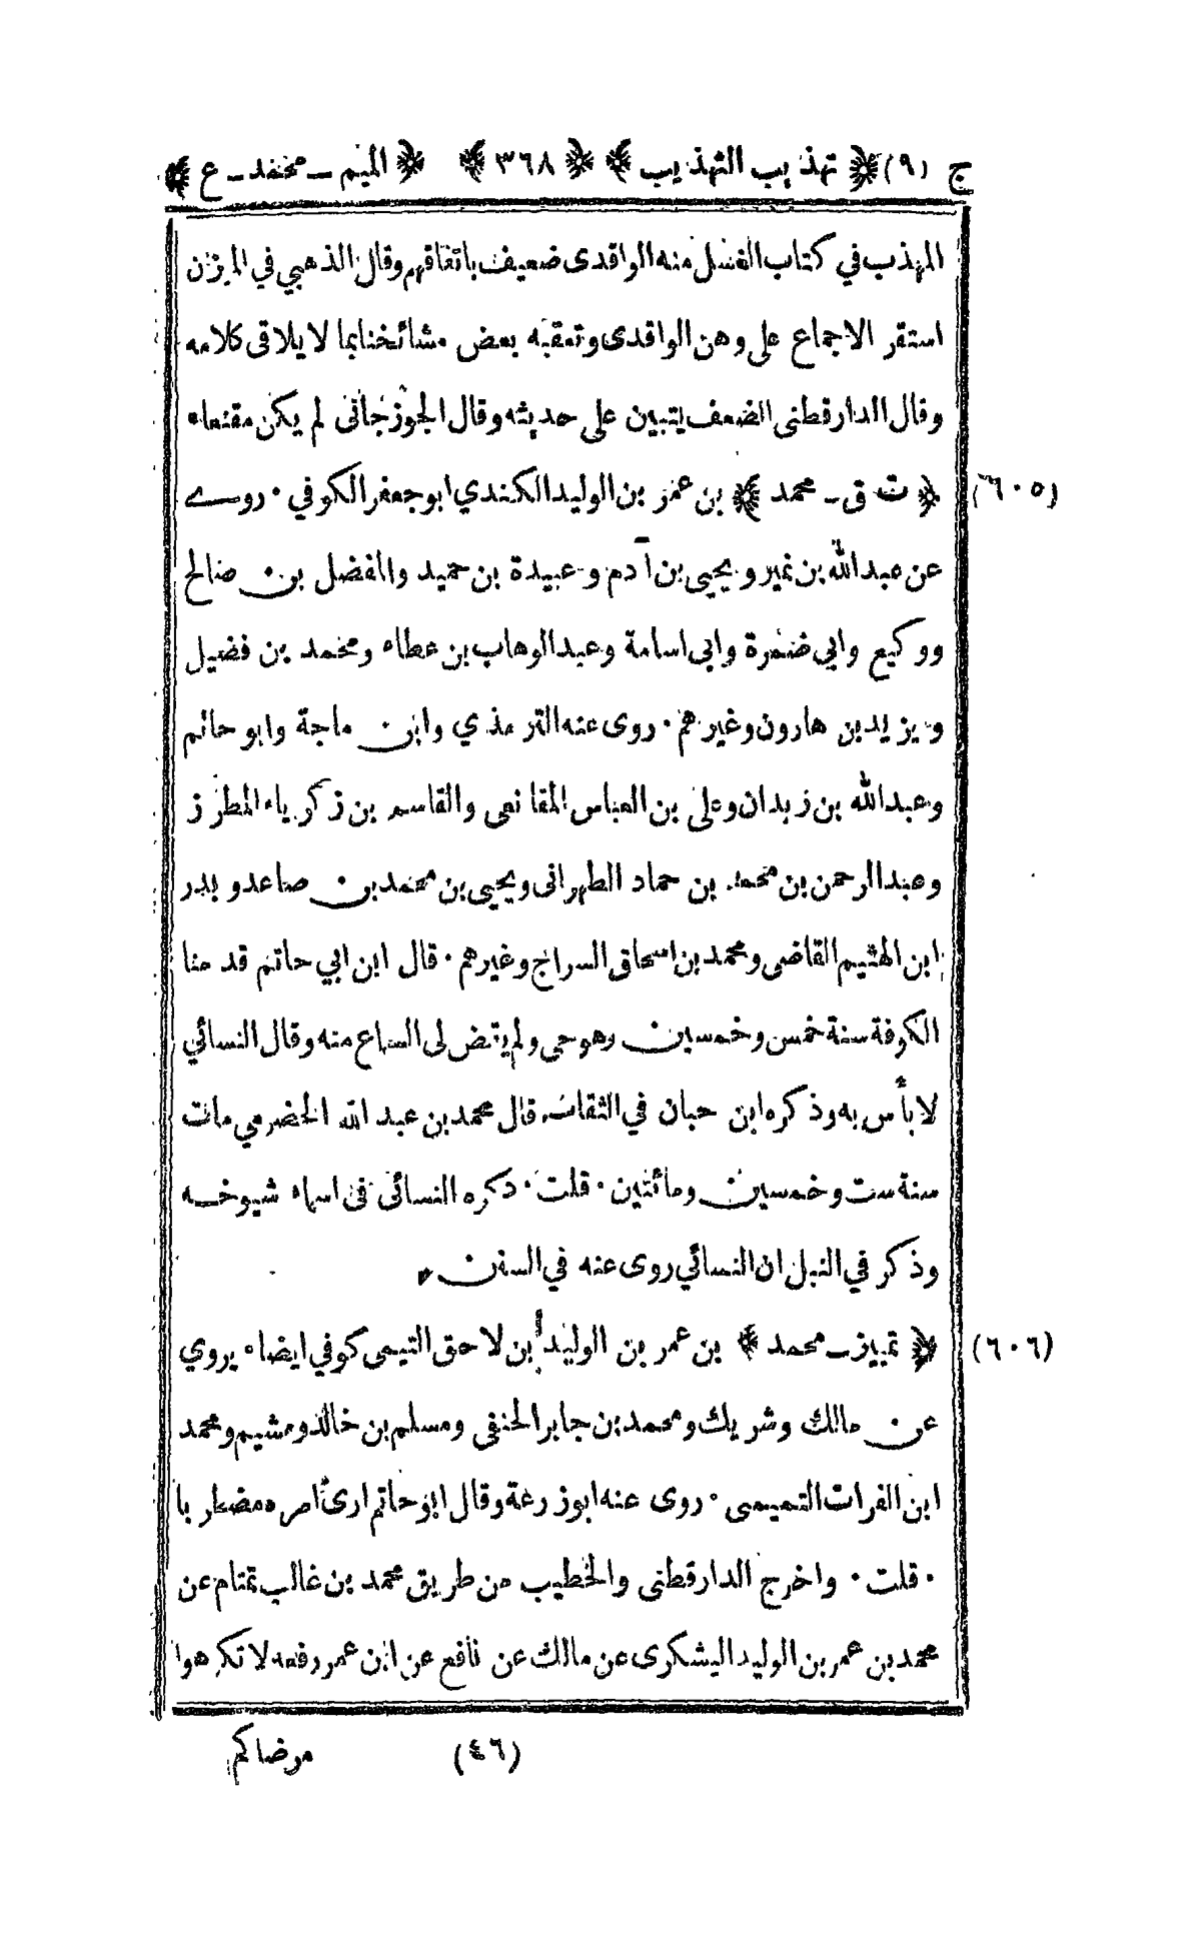 ج (٩) ﴿ تهذيب التهذيب ﴾ ﴿ ٣٦٨ ﴾ ﴿ الميم ـ محمد ـ ع ﴾
المهذب في كتاب الغسل منه الواقدى ضعيف باتفاقهم وقال الذهبي في الميزان
استقر الاجماع على وهن الواقدى وتعقبه بعض مشائخنا بما لا يلاقى كلامه
وقال الدارقطنى الضعف يتبين على حديثه وقال الجوزجانى لم يكن مقنعا*
(٦٠٥) ﴿ ت ق ـ محمد ﴾ بن عمر بن الوليد الكندي ابو جعفر الكوفي ٠ روى
عن عبد الله بن نمير ويحيى بن آدم وعبيدة بن حميد والمفضل بن صالح
ووكيع وابي ضمرة وابى اسامة وعبد الوهاب بن عطاء ومحمد بن فضيل
ويزيد بن هارون وغيرهم ٠ روى عنه الترمذي وابن ماجة وابو حاتم
وعبد الله بن زيدان وعلى بن العباس المقانعى والقاسم بن زكرياء المطرز
وعبد الرحمن بن محمد بن حماد الطهرانى ويحيى بن محمد بن صاعد وبدر
ابن الهثيم القاضى ومحمد بن اسحاق السراج وغيرهم ٠ قال ابن ابي حاتم قدمنا
الكوفة سنة خمس وخمسين وهو حى ولم يقض لى السماع منه وقال النسائي
لا بأس به وذكره ابن حبان في الثقات قال محمد بن عبد الله الحضرمي مات
سنة ست وخمسين ومائتين ٠ قلت ٠ ذكره النسائى فى اسماء شيوخه
وذكر في النبل ان النسائي روى عنه في السنن *
(٦٠٦) ﴿ تمييز ـ محمد ﴾ بن عمر بن الوليد أبن لاحق التيمى كوفي ايضا * يروي
عن مالك وشريك ومحمد بن جابر الحنفى ومسلم بن خالد وهشيم ومحمد
ابن الفرات التميمى ٠ روى عنه ابو زرعة وقال ابو حاتم ارى امره مضطربا
٠ قلت ٠ واخرج الدارقطنى والخطيب من طريق محمد بن غالب تمتام عن
محمد بن عمر بن الوليد اليشكرى عن مالك عن نافع عن ابن عمر رفعه لا تكرهوا
(٤٦) مرضاكم